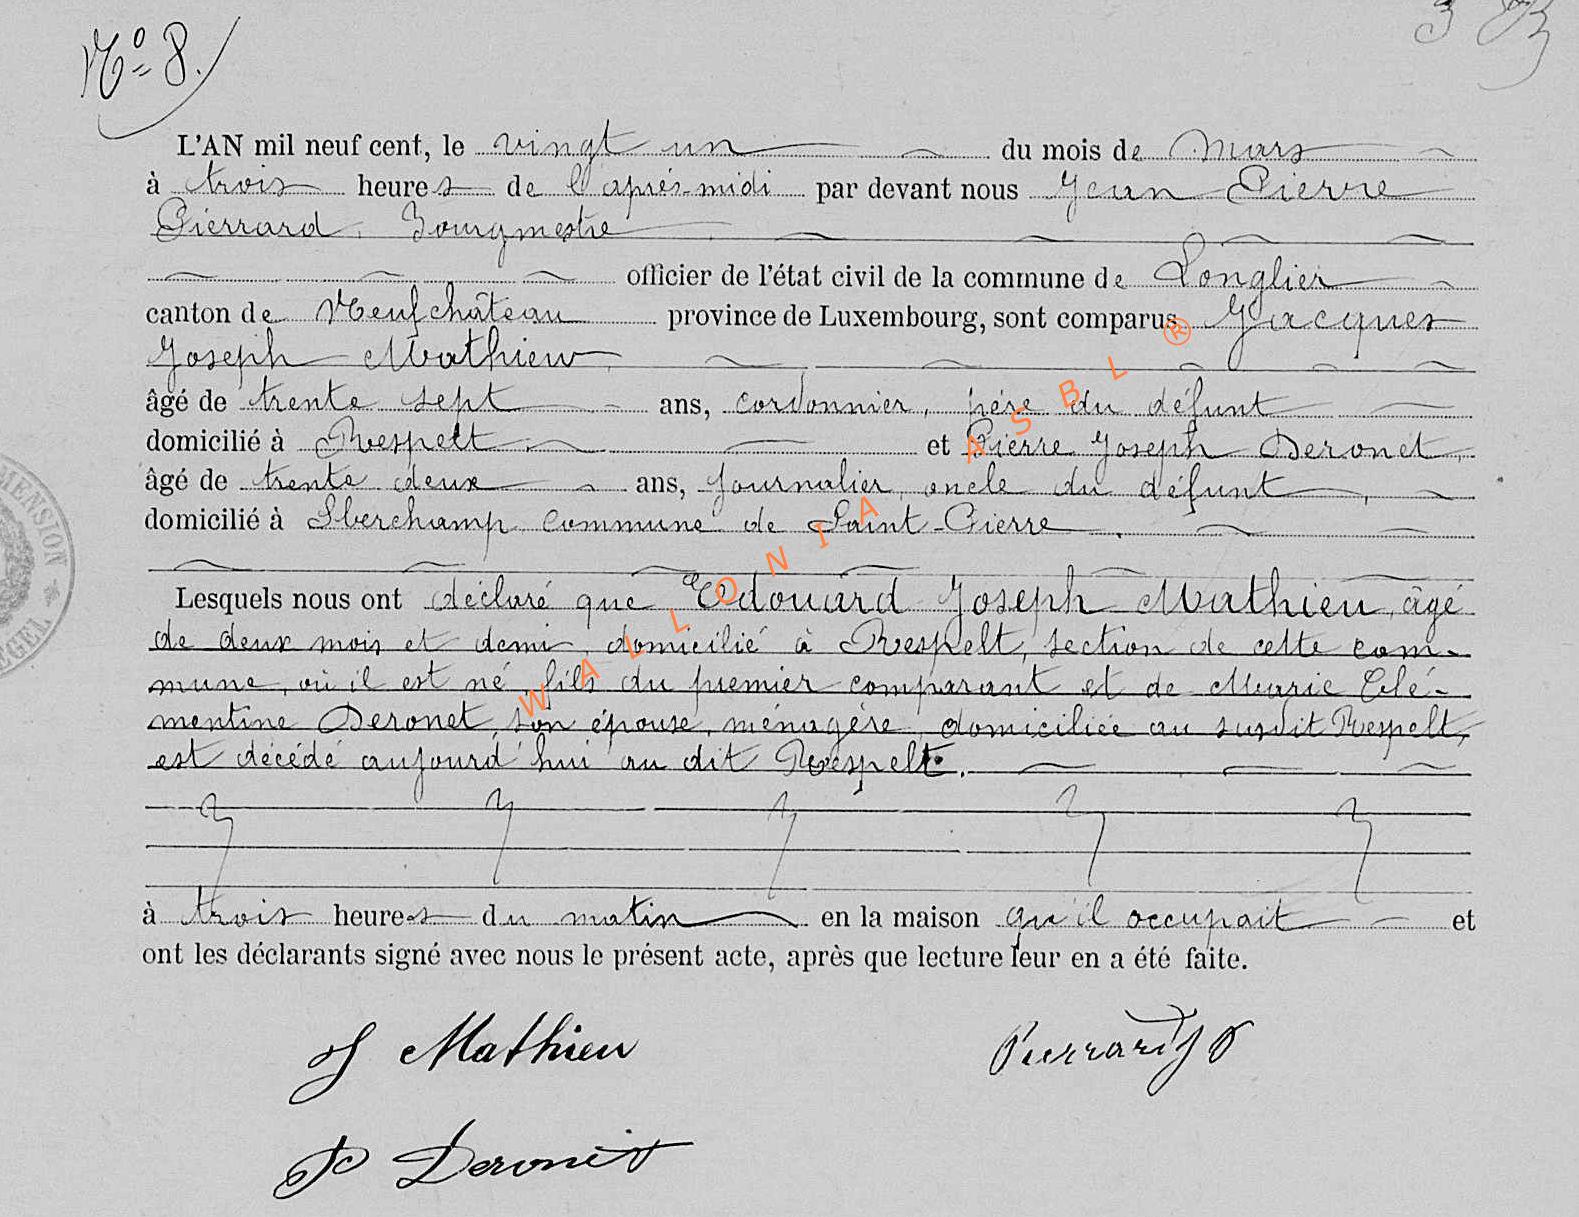 No 8.
L'AN mil neuf cent, le vingt un du mois de Mars
à trois heures de l'après-midi par devant nous Jean Pierre
Pierrard, Bourgmestre
officier de l'état civil de la commune de Longlier
canton de Neufchâteau province de Luxembourg, sont comparus Jacques
Joseph Mathieu,
âgé de trente sept ans, cordonnier, père du défunt
domicilié à Respelt, et Pierre Joseph Deronet,
âgé de trente deux ans, journalier, oncle du défunt,
domicilié à Sberchamp commune de Saint-Pierre.
Lesquels nous ont déclaré que Edouard Joseph Mathieu, âgé
de deux mois et demi, domicilié à Respelt, section de cette com-
mune, où il est né, fils du premier comparant et de Marie Clé-
mentine Deronet, son épouse, ménagère, domiciliée au susdit Respelt,
est décédé aujourd'hui au dit Respelt.
à trois heures du matin en la maison qu'il occupait et
ont les déclarants signé avec nous le présent acte, après que lecture leur en a été faite.
J Mathieu Pierrard JP
P Deronet
WALLONIA ASBL ®
MENSION
EGEL